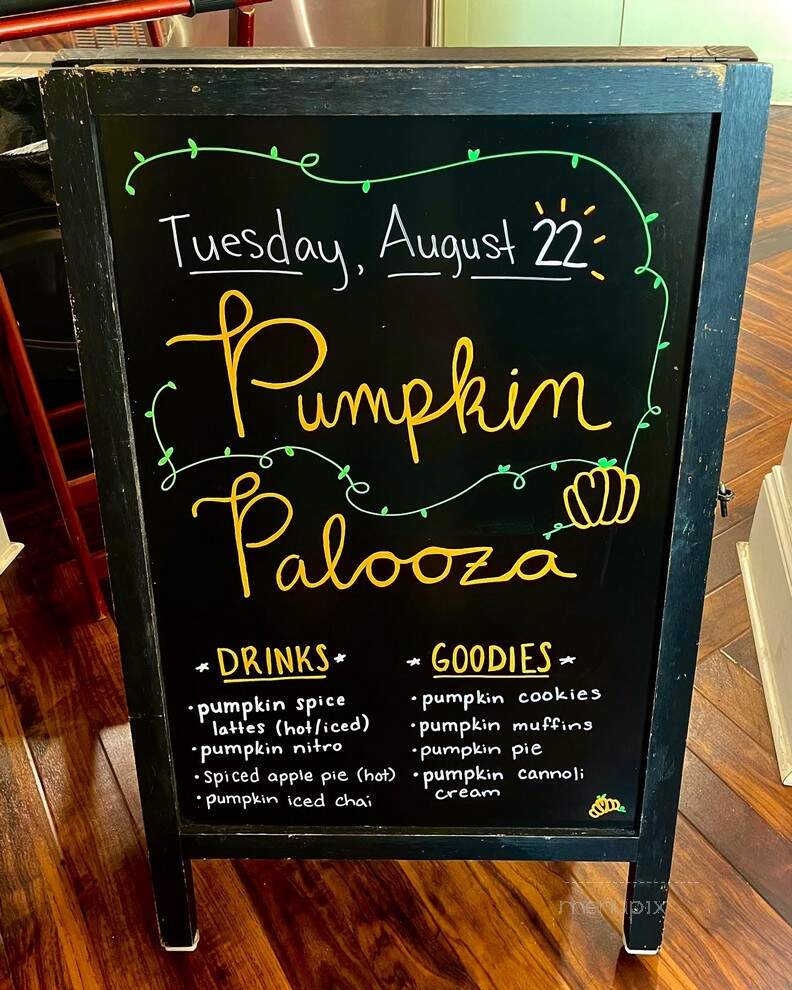 Tuesday, August 22
Pumpkin
Palooza
DRINKS
• pumpkin spice
lattes (hot/iced)
• pumpkin nitro
• spiced apple pie (hot)
• pumpkin iced chai
GOODIES
• pumpkin cookies
• pumpkin muffins
• pumpkin pie
• pumpkin cannoli
cream
menupix